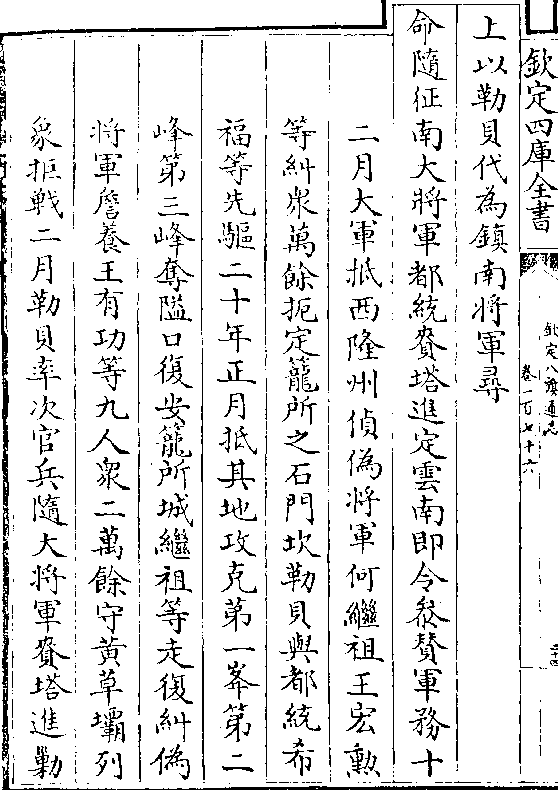 欽定四庫全書
欽定八旗通志
卷一百七十六
上以勒貝代為鎮南將軍尋
命隨征南大將軍都統賚塔進定雲南即令叅贊軍務十
二月大軍抵西隆州偵偽將軍何繼祖王宏勳
等糾衆萬餘扼定籠所之石門坎勒貝與都統希
福等先驅二十年正月抵其地攻克第一峯第二
峰第三峰奪隘口復安籠所城繼祖等走復糾偽
將軍詹養王有功等九人衆二萬餘守黄草壩列
象拒戰二月勒貝率次官兵隨大將軍賚塔進勦